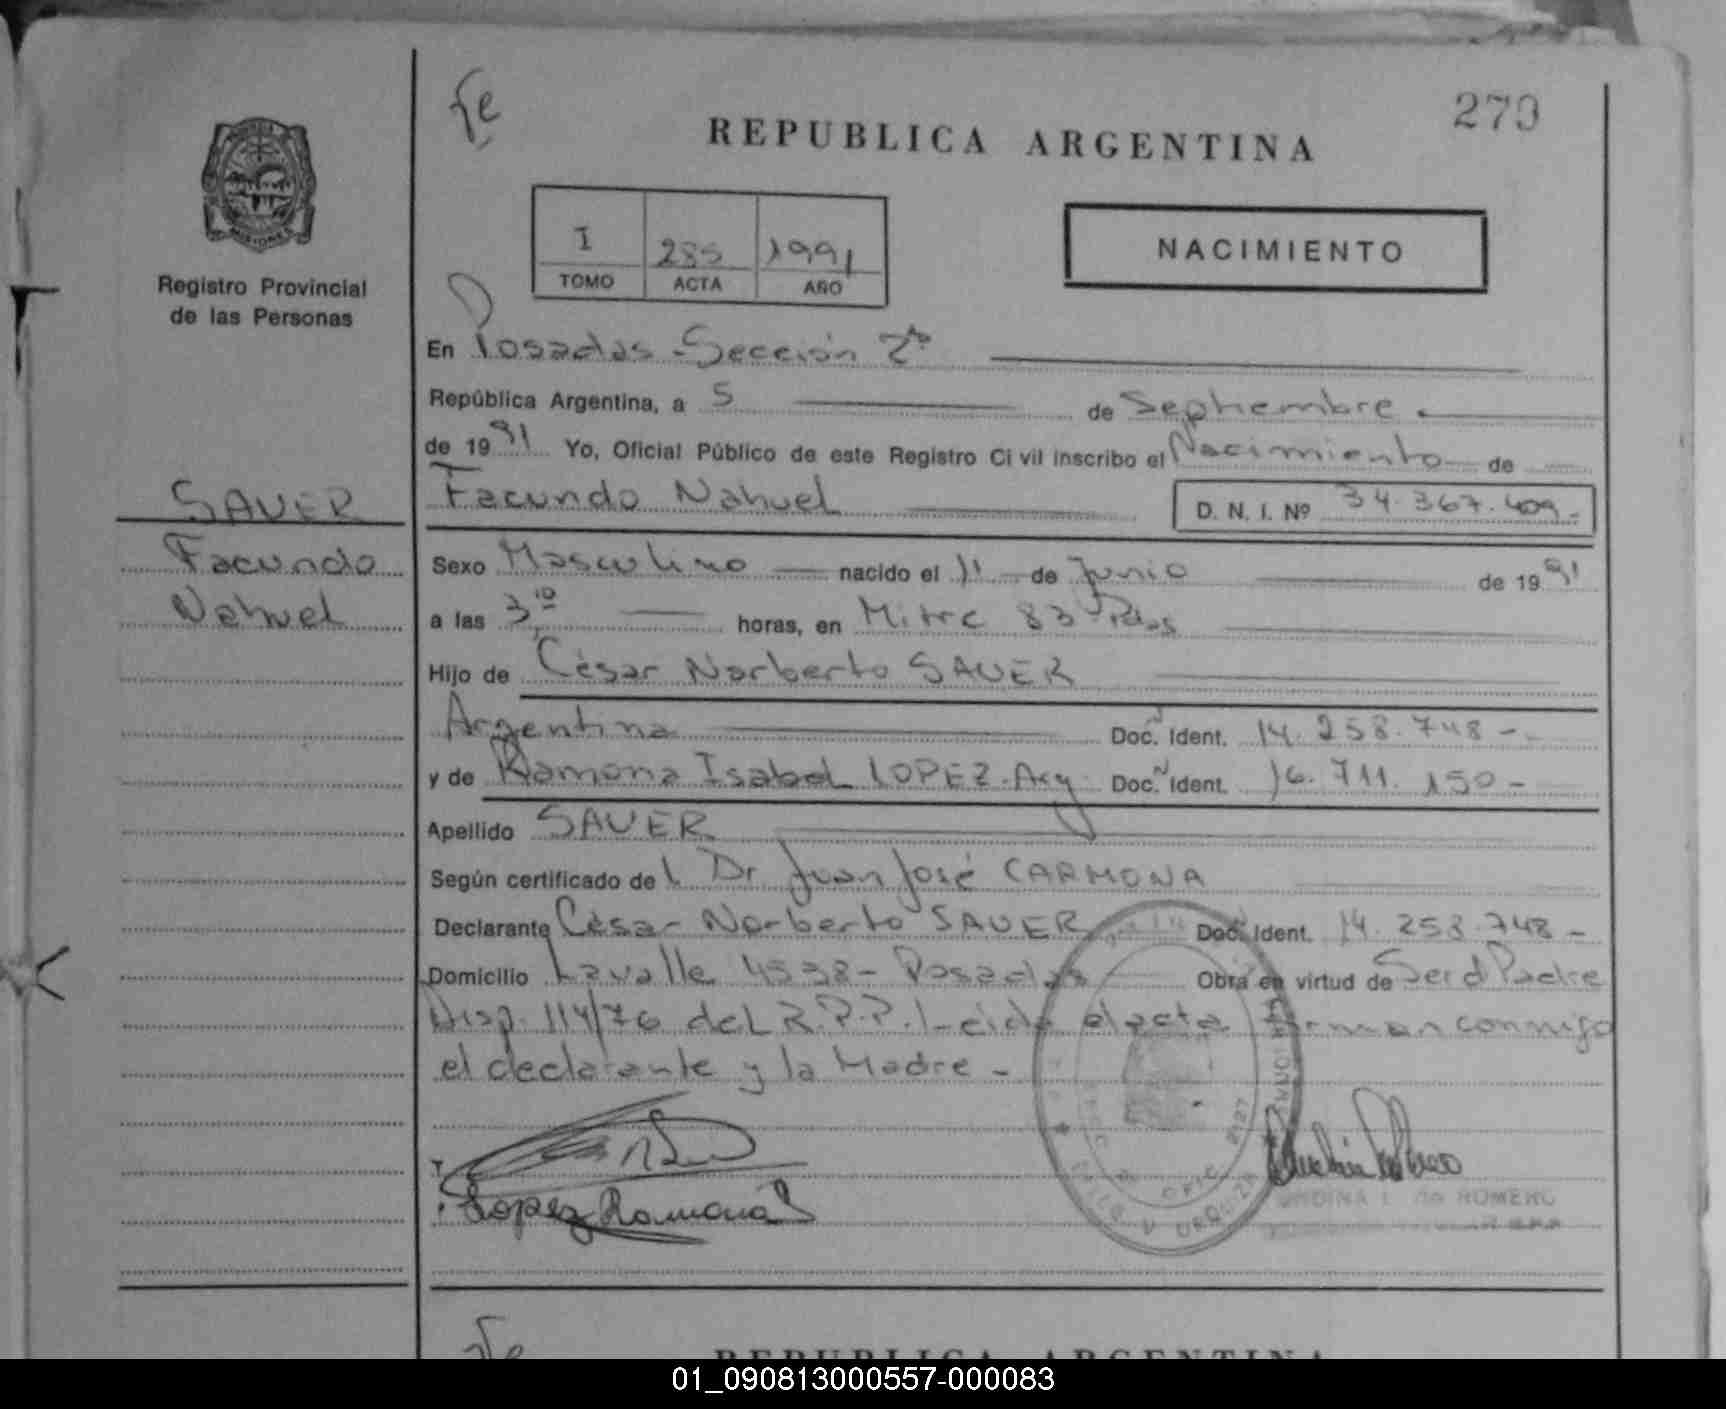 fe
279
REPUBLICA ARGENTINA
MISIONES
Registro Provincial
de las Personas
I 285 1991
TOMO ACTA AÑO
NACIMIENTO
En Posadas - Sección 2ª
República Argentina, a 5 de Septiembre
de 1991 Yo, Oficial Público de este Registro Civil inscribo el Nacimiento de
SAUER
Facundo Nahuel
D. N. I. Nº 34.367.409-
Facundo
Nahuel
Sexo Masculino nacido el 11 de Junio de 1991
a las 3,10 horas, en Mitre 83 Pdas
Hijo de César Norberto SAUER
Argentina Doc. Ident. 14.258.748-
y de Ramona Isabel LOPEZ. Arg Doc. Ident. 16.711.150-
Apellido SAUER
Según certificado del Dr Juan José CARMONA
Declarante César Norberto SAUER Doc. Ident. 14 258.748-
Domicilio Lavalle 4538- Posadas Obra en virtud de Ser el Padre
Disp. 114/76 del R.P.P. Leida el acta firman conmigo
el declarante y la Madre -
Lopez Ramona
OFIC. 2127
URQUIZA
ONDINA I. de ROMERO
fe
REPUBLICA ARGENTINA
01_090813000557-000083